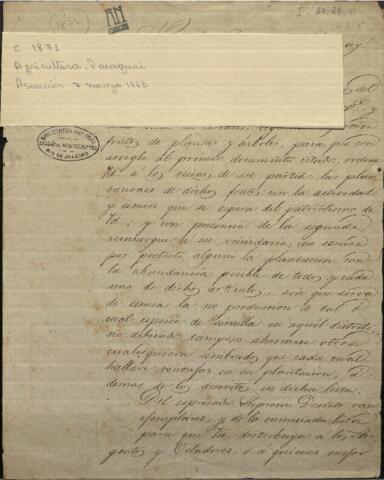 1871
AN
C. 1871
Agricultura - Paraguai
Asunción 7 março 1863
BIBLIOTHECA NACIONAL
SECÇÃO DE MANUSCRIPTOS
RIO DE JANEIRO
frutos de plantas y árboles, para que con
arreglo al primer documento citado, ordene
Vd. á los vecinos de su partido las plan-
taciones de dichos frutos con la actividad
y esmero que se espera del patriotismo de
Vd. y con presencia de la segunda,
recargue á su vecindario, no
por pretesto alguno la plantacion con
la abundancia posible de todos y cada
uno de dichos articulos, sin que sirva
de escusa la no produccion de tal ó
cual especie de semilla en aquel distrito,
no debiendo tampoco ahorrarse otros
cualesquiera sembrados que cada cual
hallare ventajas en su plantacion, á
demas de los descrito en dicha lista.
Del espresado Supremo Decreto van
ejemplares, y de la enunciada lista
para que Vd. distribuya á los Sar-
gentos y Celadores, ó á quienes mejor